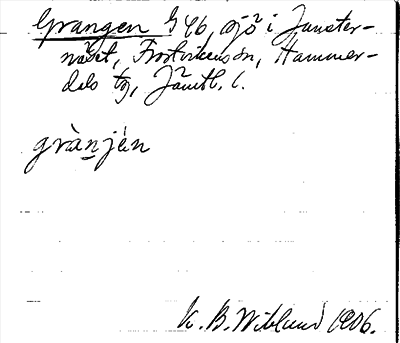 Grangen G 46, sjö i Jänster-
näset, Frostvikens sn, Hammer-
dals tg, Jämtl. l.
gràn̲jén
K. B. Wiklund 1906.